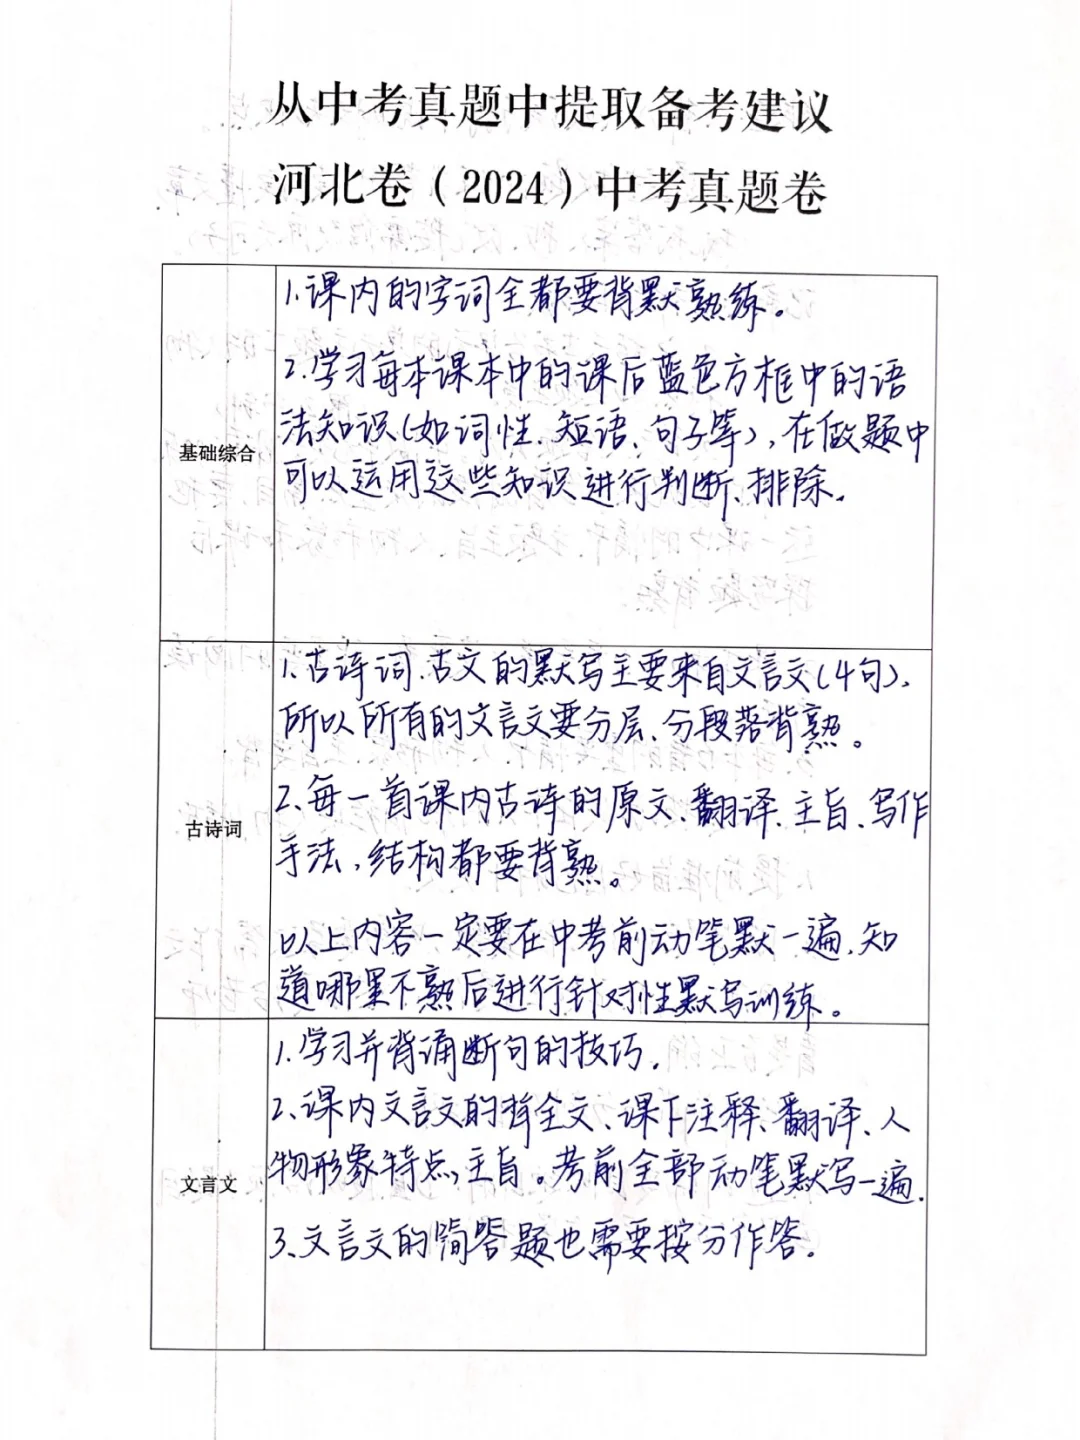 从中考真题中提取备考建议
河北卷（2024）中考真题卷
基础综合
1.课内的字词全都要背默熟练。
2.学习每本课本中的课后蓝色方框中的语
法知识(如词性、短语、句子等)，在做题中
可以运用这些知识进行判断、排除。
古诗词
1.古诗词、古文的默写主要来自文言文(4句)，
所以所有的文言文要分层、分段落背熟。
2、每一首课内古诗的原文、翻译、主旨、写作
手法，结构都要背熟。
以上内容一定要在中考前动笔默一遍，知
道哪里不熟后进行针对性默写训练。
文言文
1.学习并背诵断句的技巧。
2、课内文言文的背全文、课下注释、翻译、人
物形象特点，主旨。考前全部动笔默写一遍.
3、文言文的简答题也需要按分作答。